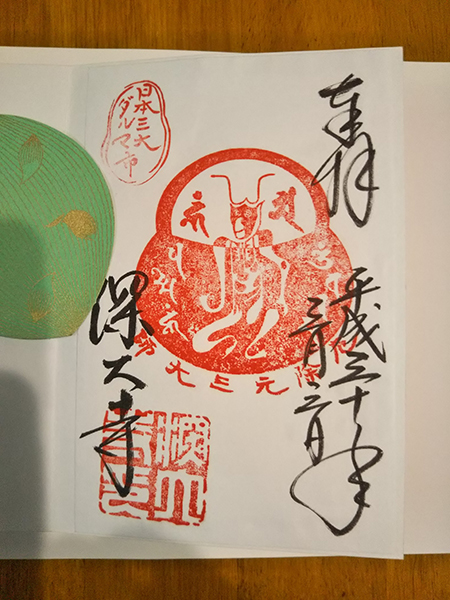 奉拝
平成三十年
三月三日
日本三大
ダルマ市
厄除元三大師
深大寺